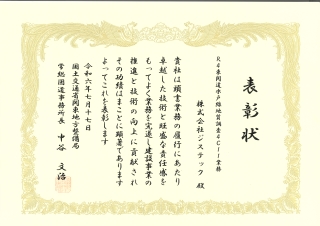 表彰状
R4東関道水戸線地質調査4C11業務
株式会社ジステック 殿
貴社は頭書業務の履行にあたり
卓越した技術と旺盛な責任感を
もってよく業務を完遂し建設事業の
推進と技術の向上に貢献され
その功績はまことに顕著であります
よってこれを表彰します
令和六年七月十七日
国土交通省関東地方整備局
常総国道事務所長 中谷 文治